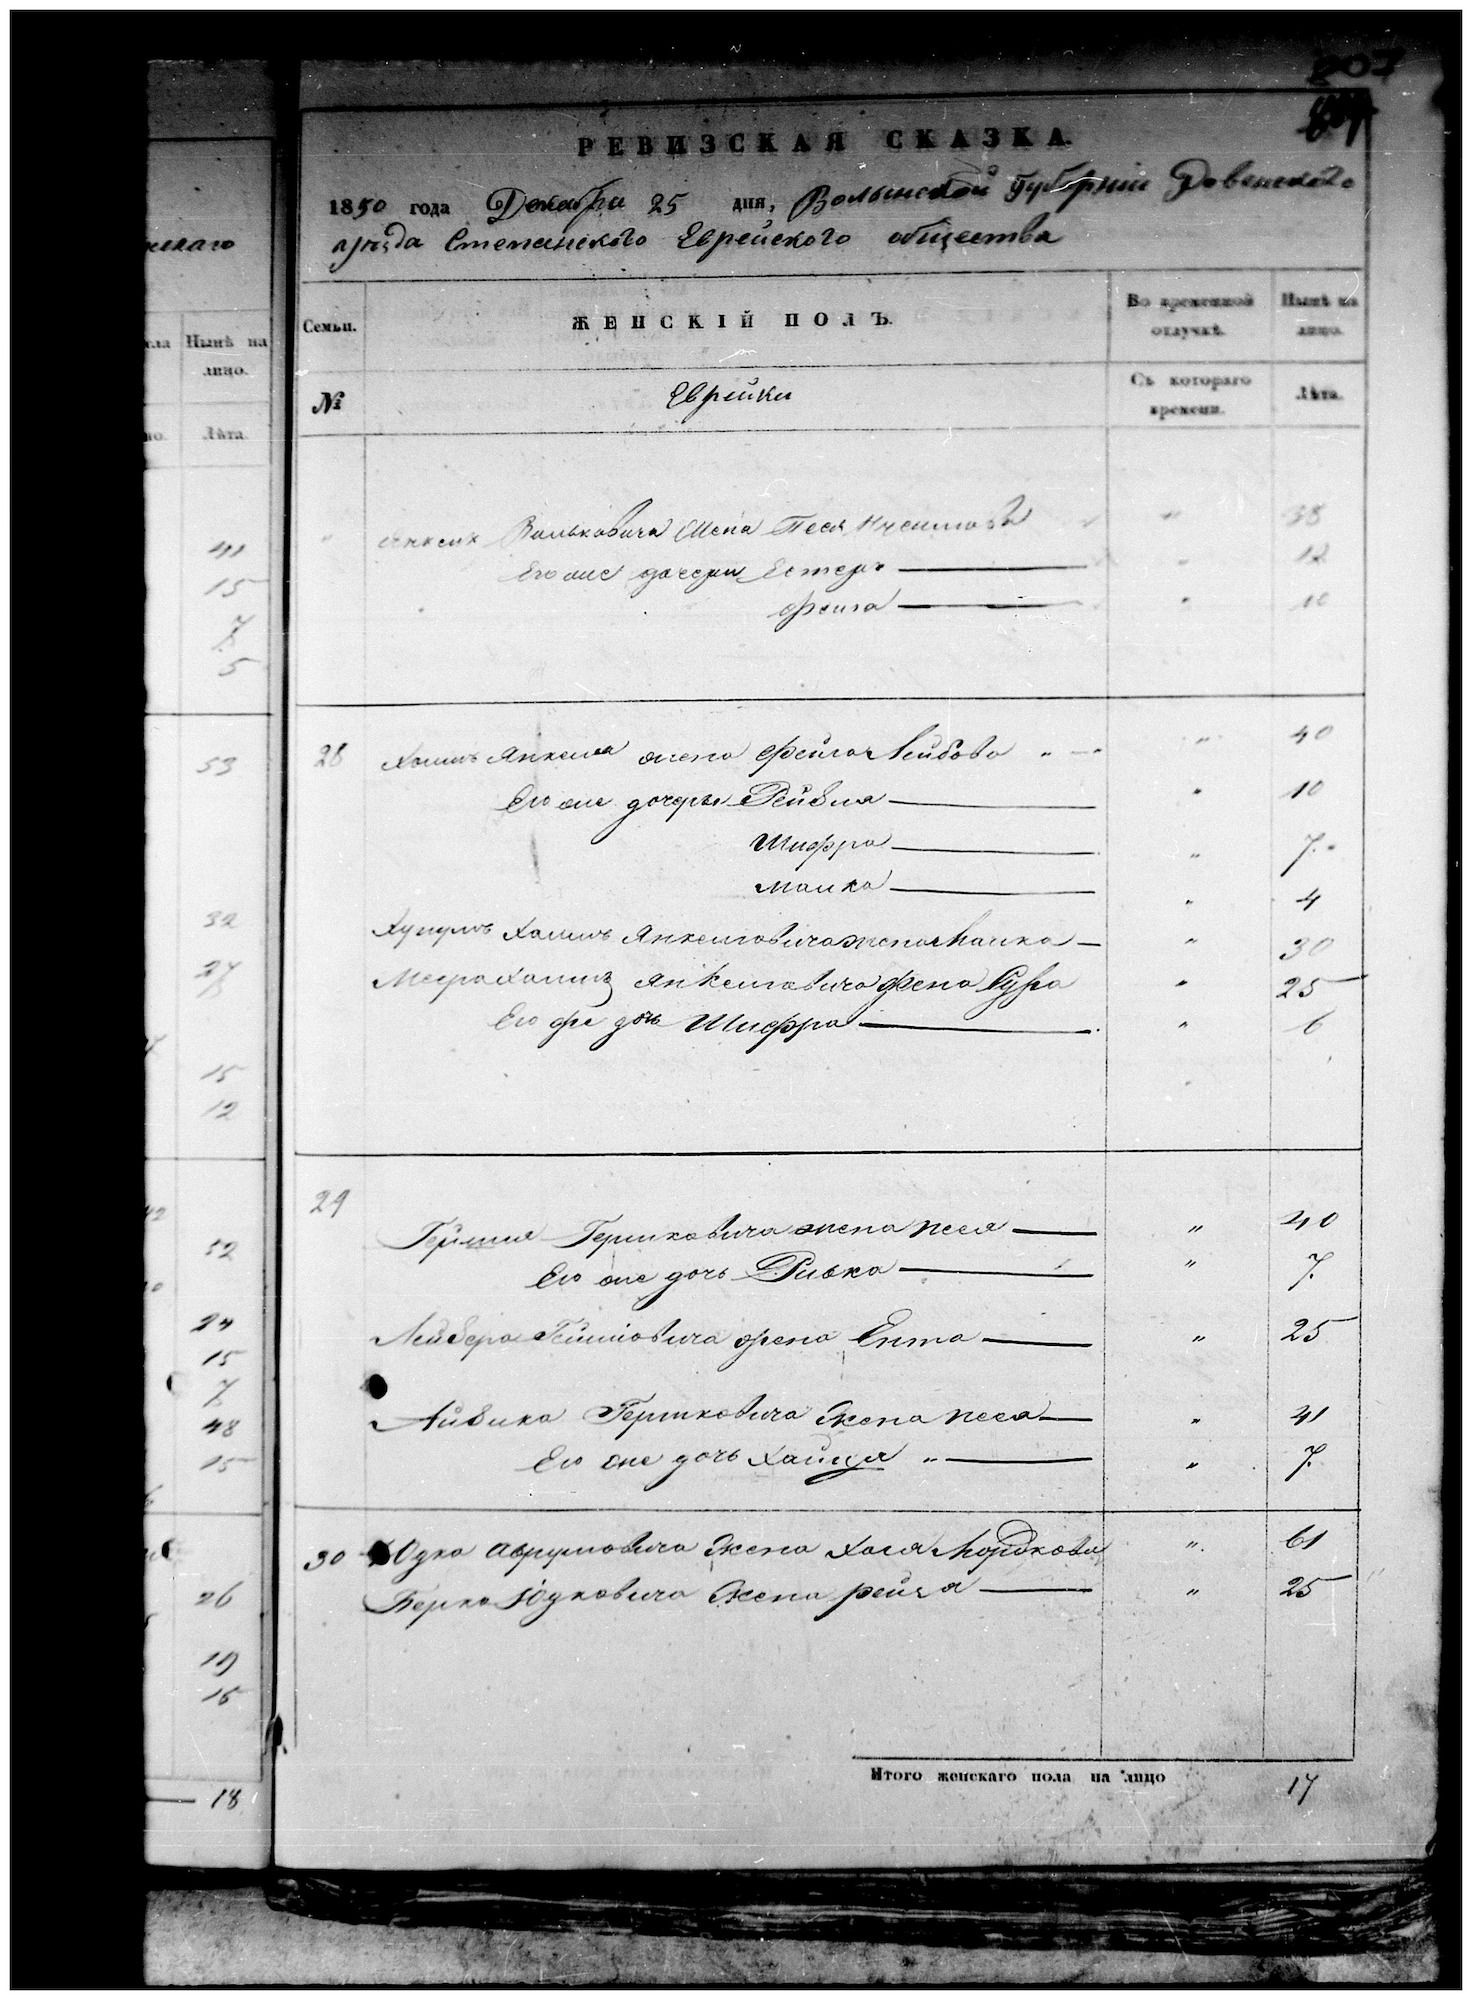 207
РЕВИЗСКАЯ СКАЗКА.
1850 года Декабря 25 дня, Волынской Губернии Ровенского
уезда Степанского Еврейского общества
Семьи. ЖЕНСКІЙ ПОЛЪ. Во временной отлучкѣ. Нынѣ на лицо.
№ Еврейки Съ котораго времени. Лѣта.
Вильковича жена Песя " 38
Его же дочери Естеръ " 12
Фейга " 10
28 Хаимъ Янкеля жена Фейга Лейбова " 40
Его же дочери Рейвля " 10
Шифра " 7
Малка " 4
Хаимъ Янкелевича жена Малка " 30
Хаимъ Янкелевича жена Сура " 25
Его же дочь Шифра " 6
29
Гершковича жена Песя " 40
Его же дочь Ривка " 7
Лейбера жена Ента " 25
Айзика Гершковича жена Песя " 41
Его же дочь Хайця " 7
30 Юдко Аврумовича жена Хася Мордкова " 61
Берко Юдковича жена Рейзя " 25
Итого женскаго пола на лицо 17
Нынѣ на
лицо.
Лѣта
41
15
7
5
53
32
27
15
12
52
24
15
7
48
15
26
19
16
18